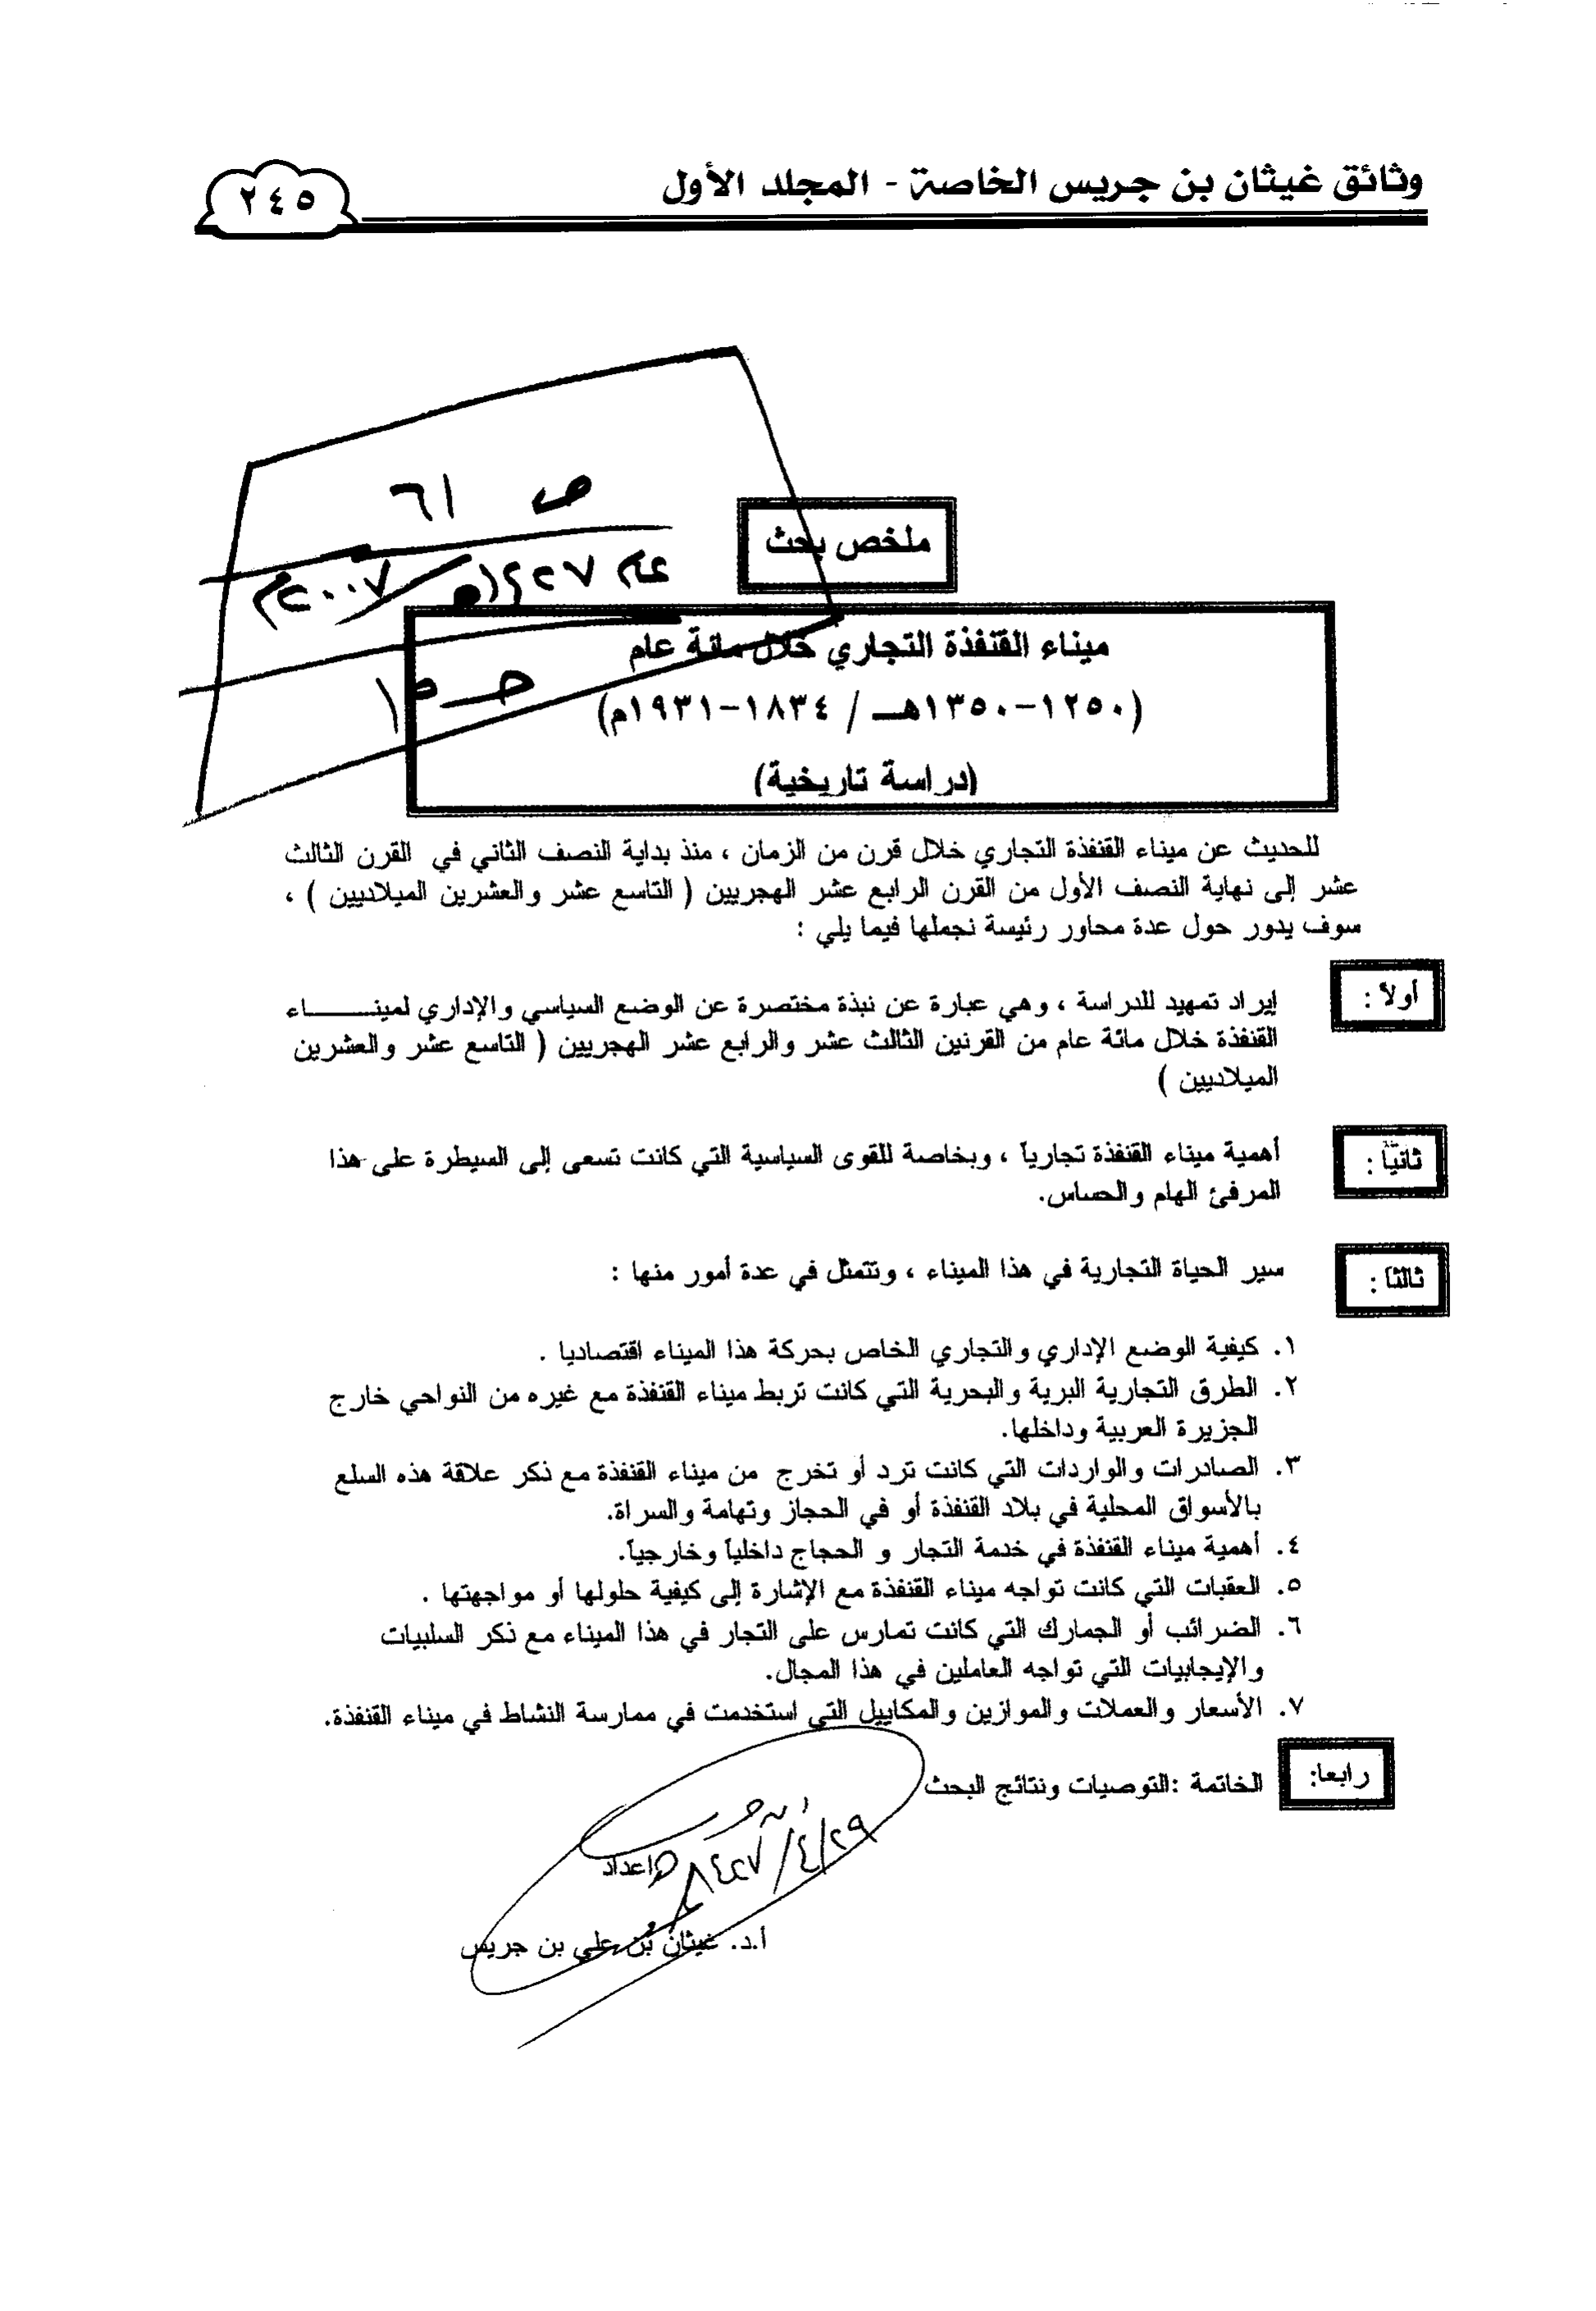 وثائق غيثان بن جريس الخاصة - المجلد الأول
٢٤٥
ص ٦١
عام ١٤٢٧هـ / ٢٠٠٧م
ملخص بحث
ميناء القنفذة التجاري خلال مائة عام
(١٢٥٠-١٣٥٠هـــ / ١٨٣٤-١٩٣١م)
(دراسة تاريخية)
للحديث عن ميناء القنفذة التجاري خلال قرن من الزمان ، منذ بداية النصف الثاني في القرن الثالث
عشر إلى نهاية النصف الأول من القرن الرابع عشر الهجريين ( التاسع عشر والعشرين الميلاديين ) ،
سوف يدور حول عدة محاور رئيسة نجملها فيما يلي :
أولاً :
إيراد تمهيد للدراسة ، وهي عبارة عن نبذة مختصرة عن الوضع السياسي والإداري لمينــــــاء
القنفذة خلال مائة عام من القرنين الثالث عشر والرابع عشر الهجريين ( التاسع عشر والعشرين
الميلاديين )
ثانياً :
أهمية ميناء القنفذة تجارياً ، وبخاصة للقوى السياسية التي كانت تسعى إلى السيطرة على هذا
المرفئ الهام والحساس.
ثالثاً :
سير الحياة التجارية في هذا الميناء ، وتتمثل في عدة أمور منها :
١. كيفية الوضع الإداري والتجاري الخاص بحركة هذا الميناء اقتصاديا .
٢. الطرق التجارية البرية والبحرية التي كانت تربط ميناء القنفذة مع غيره من النواحي خارج
الجزيرة العربية وداخلها.
٣. الصادرات والواردات التي كانت ترد أو تخرج من ميناء القنفذة مع ذكر علاقة هذه السلع
بالأسواق المحلية في بلاد القنفذة أو في الحجاز وتهامة والسراة.
٤. أهمية ميناء القنفذة في خدمة التجار و الحجاج داخلياً وخارجياً.
٥. العقبات التي كانت تواجه ميناء القنفذة مع الإشارة إلى كيفية حلولها أو مواجهتها .
٦. الضرائب أو الجمارك التي كانت تمارس على التجار في هذا الميناء مع ذكر السلبيات
والإيجابيات التي تواجه العاملين في هذا المجال.
٧. الأسعار والعملات والموازين والمكاييل التي استخدمت في ممارسة النشاط في ميناء القنفذة.
رابعا:
الخاتمة :التوصيات ونتائج البحث
١٤٢٧/٤/٢٩هـ
إعداد
أ.د. غيثان بن علي بن جريس